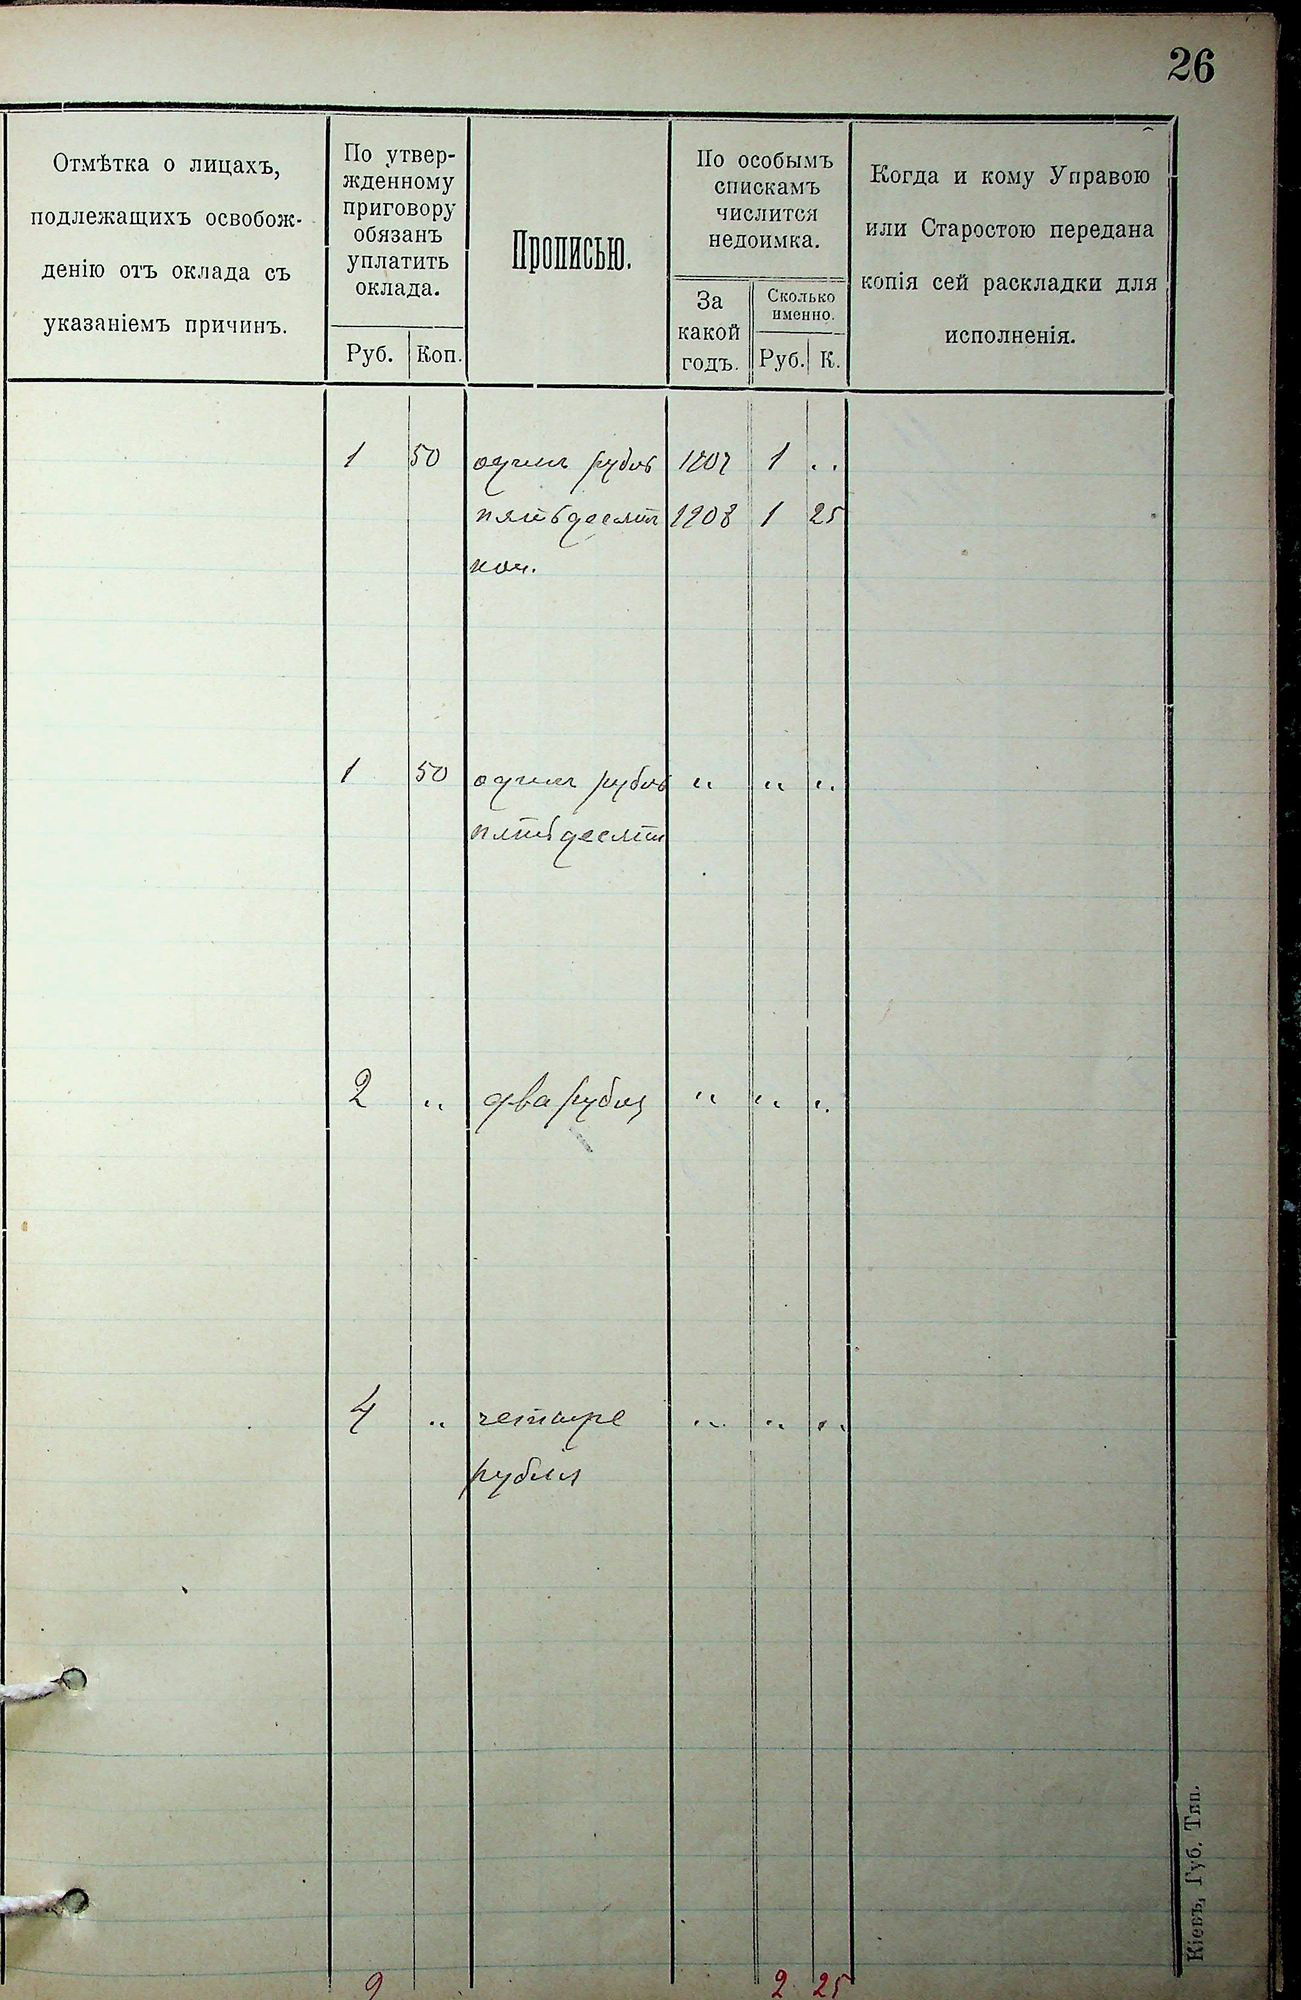 26
Отмѣтка о лицахъ,
подлежащихъ освобож-
денію отъ оклада съ
указаніемъ причинъ.
По утвер-
жденному
приговору
обязанъ
уплатить
оклада.
Руб. Коп.
Прописью.
По особымъ
спискамъ
числится
недоимка.
За
какой
годъ.
Сколько
именно.
Руб. К.
Когда и кому Управою
или Старостою передана
копія сей раскладки для
исполненія.
1 50 одинъ рубль 1907 1 "
пятьдесятъ 1908 1 25
коп.
1 50 одинъ рубль " " "
пятьдесятъ
2 " два рубля " " "
4 " четыре " " "
рубля
9 2 25
Кіевъ, Губ. Тип.